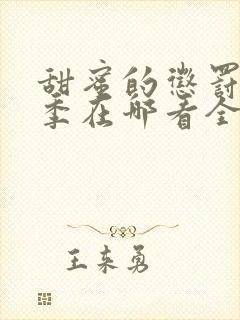 甜蜜的惩罚
季在哪看全
王来勇